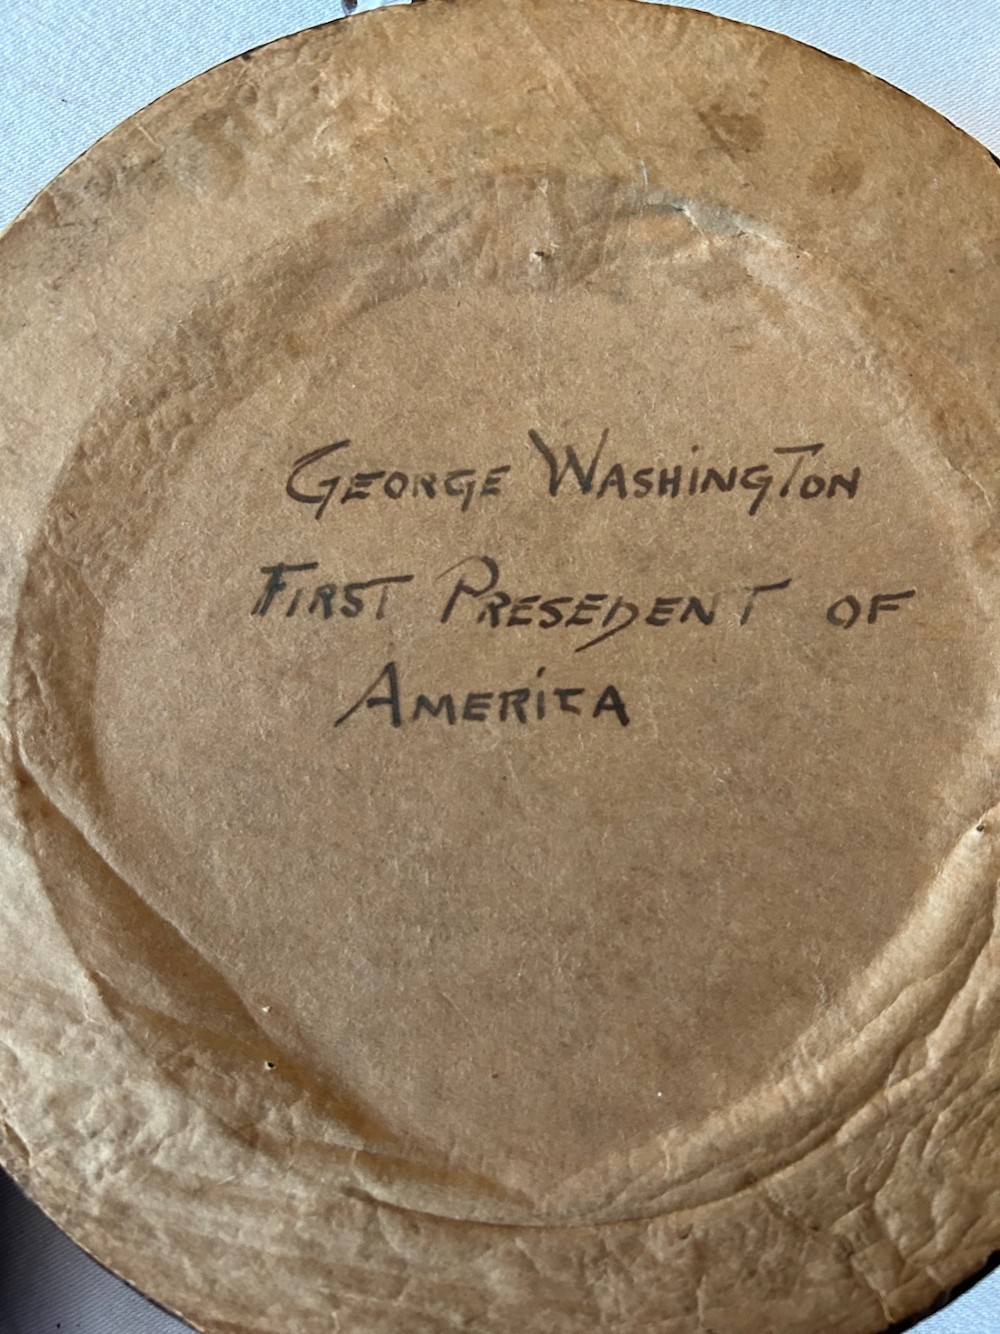 GEORGE WASHINGTON
FIRST PRESEDENT OF
AMERICA